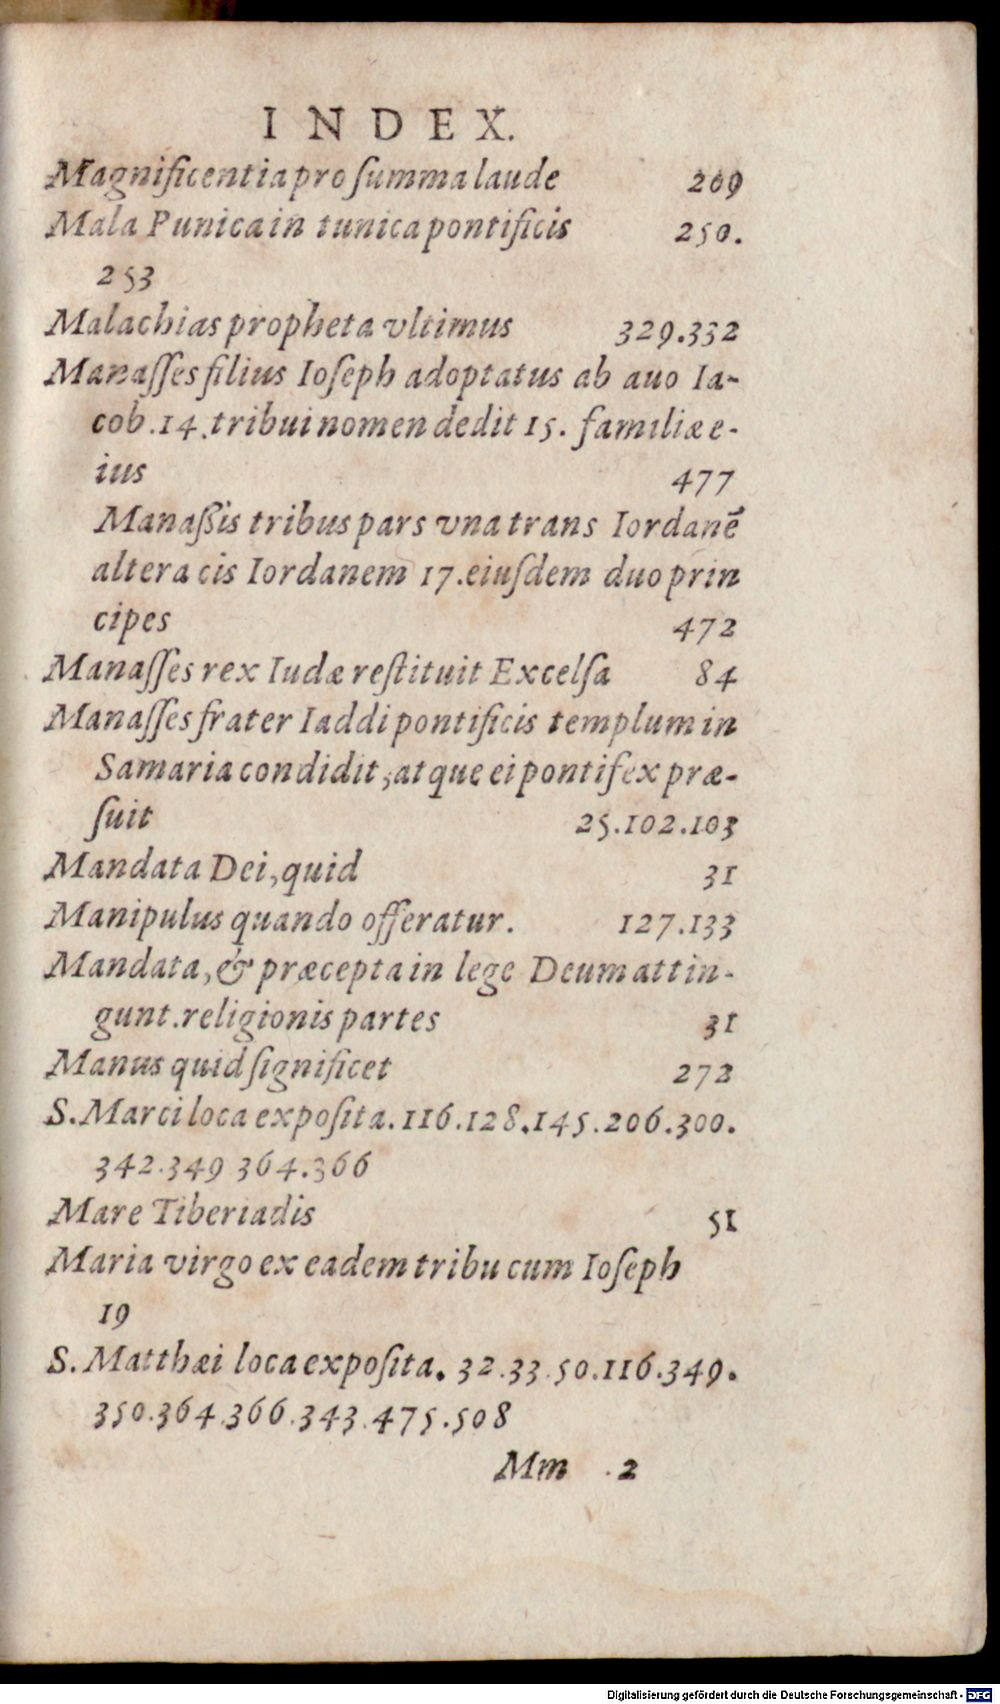 INDEX.
Magnificentia pro ſumma laude 269
Mala Punica in tunica pontificis 250.
253
Malachias propheta vltimus 329.332
Manaſſes filius Ioſeph adoptatus ab auo Ia-
cob.14.tribui nomen dedit 15. familiæ e-
ius 477
Manaßis tribus pars vna trans Iordanē
altera cis Iordanem 17.eiuſdem duo prin
cipes 472
Manaſſes rex Iudæ reſtituit Excelſa 84
Manaſſes frater Iaddi pontificis templum in
Samaria condidit, atque ei pontifex præ-
fuit 25.102.103
Mandata Dei, quid 31
Manipulus quando offeratur. 127.133
Mandata, & præcepta in lege Deum attin-
gunt.religionis partes 31
Manus quid ſignificet 272
S. Marci loca expoſita. 116.128.145.206.300.
342.349 364.366
Mare Tiberiadis 51
Maria virgo ex eadem tribu cum Ioſeph
19
S. Matthæi loca expoſita. 32.33.50.116.349.
350.364.366.343.475.508
Mm 2
Digitalisierung gefördert durch die Deutsche Forschungsgemeinschaft - DFG